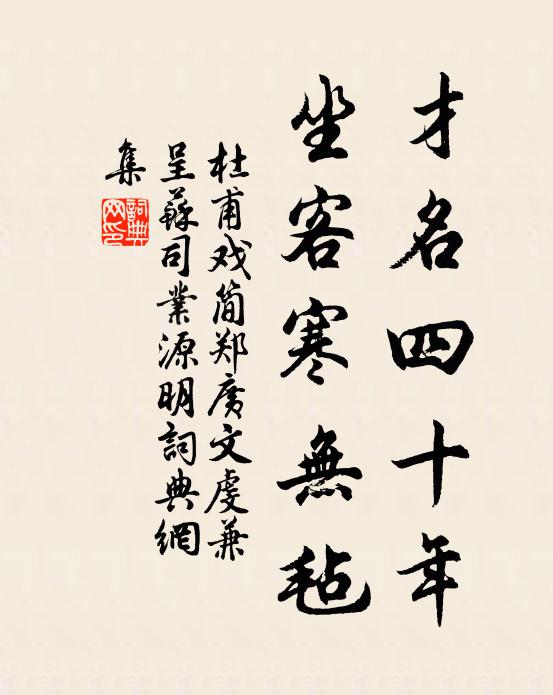 才名四十年
坐客寒無毡
杜甫戏简郑廣文虔兼
呈蘇司業源明詞典網
集
詞典網印